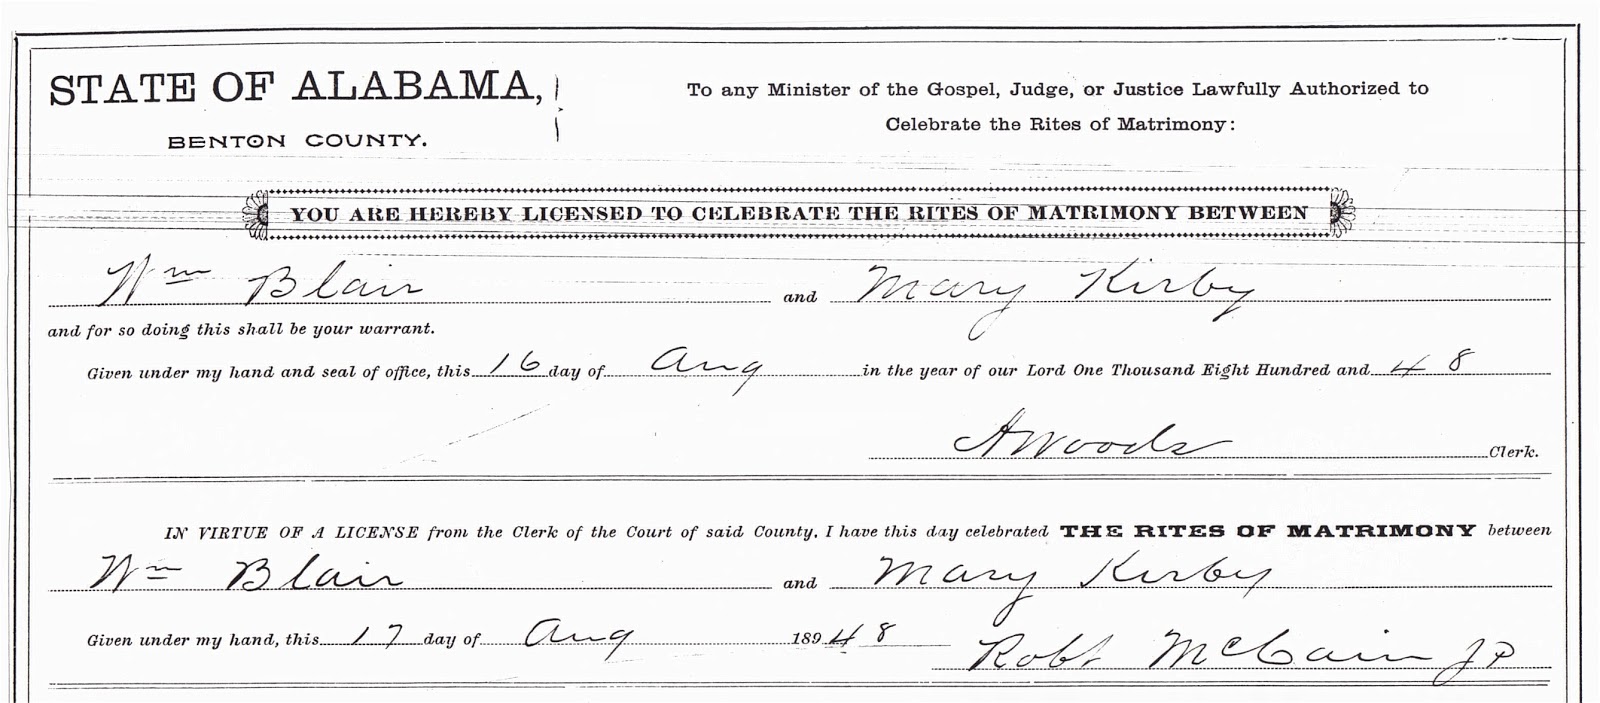 STATE OF ALABAMA,
BENTON COUNTY.
To any Minister of the Gospel, Judge, or Justice Lawfully Authorized to
Celebrate the Rites of Matrimony:
YOU ARE HEREBY LICENSED TO CELEBRATE THE RITES OF MATRIMONY BETWEEN
Wm Blair and Mary Kirby
and for so doing this shall be your warrant.
Given under my hand and seal of office, this 16 day of Aug in the year of our Lord One Thousand Eight Hundred and 48
A Woods Clerk.
IN VIRTUE OF A LICENSE from the Clerk of the Court of said County, I have this day celebrated THE RITES OF MATRIMONY between
Wm Blair and Mary Kirby
Given under my hand, this 17 day of Aug 189 48
Robt McCain JP